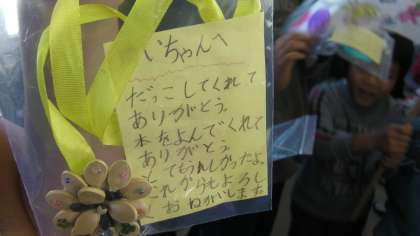 いちゃんへ
だっこしてくれて
ありがとう。
本をよんでくれて
ありがとう
とてもうれしかったよ
これからもよろし
おねがいします